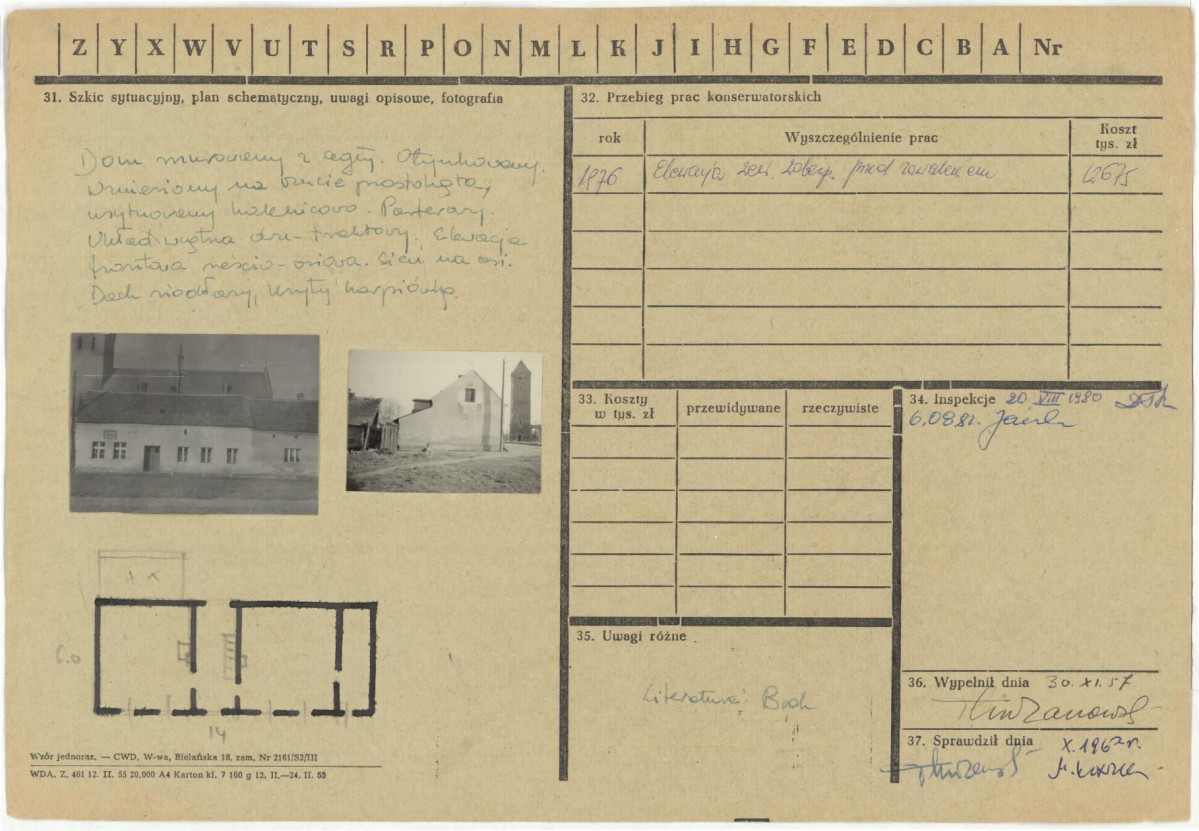 Z Y X W V U T S R P O N M L K J I H G F E D C B A Nr
31. Szkic sytuacyjny, plan schematyczny, uwagi opisowe, fotografia
Dom murowany z cegły. Otynkowany.
Wzniesiony na rzucie prostokąta,
usytuowany kalenicowo. Parterowy.
Układ wnętrza dwu-traktowy. Elewacja
frontowa sześcio-osiowa. Sień na osi.
Dach siodłowy, kryty karpiówką.
6.0
x x
14
Wzór jednoraz. — CWD, W-wa, Bielańska 18, zam. Nr 2161/S2/III
WDA. Z. 461 12. II. 55 20,000 A4 Karton kl. 7 160 g 12. II.—24. II. 55
32. Przebieg prac konserwatorskich
rok Wyszczególnienie prac Koszt tys. zł
1976 Elewacja zew. zabezp. przed zawaleniem 12675
33. Koszty w tys. zł przewidywane rzeczywiste
34. Inspekcje 20 VIII 1980
6.08.81.
35. Uwagi różne
Literatura: Brak
36. Wypełnił dnia 30.XI.57
37. Sprawdził dnia X.1962 r.